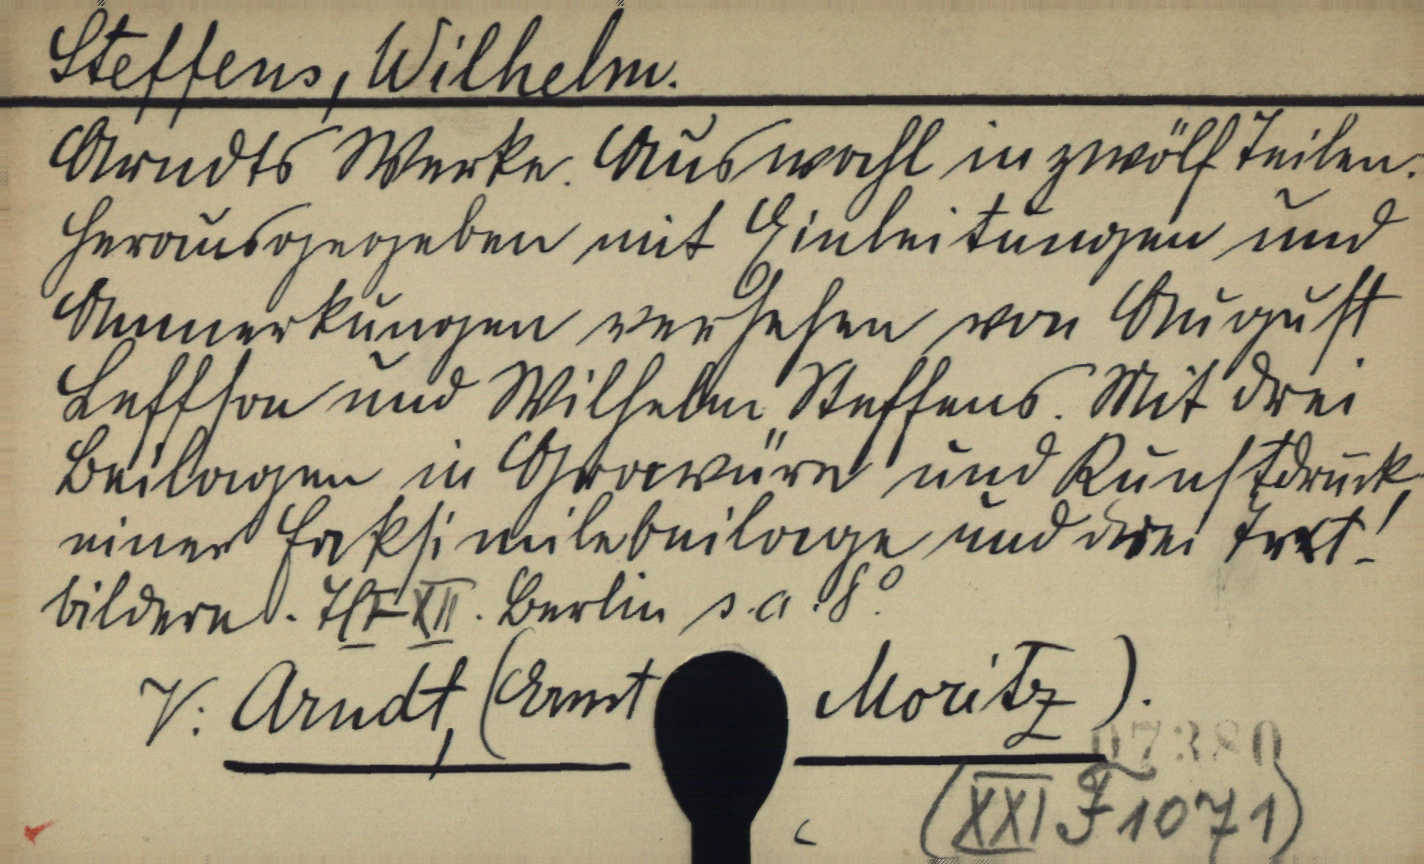 Steffens, Wilhelm.
Arndts Werke. Auswahl in zwölf Teilen.
Herausgegeben mit Einleitungen und
Anmerkungen versehen von August
Leffson und Wilhelm Steffens. Mit drei
Beilagen in Gravüre und Kunstdruck,
einer Faksimilebeilage und drei Text-
bildern. Tl I-XII. Berlin s.a. 8°.
V: Arndt, (Ernst Moritz).
07380
(XXI F 1071)